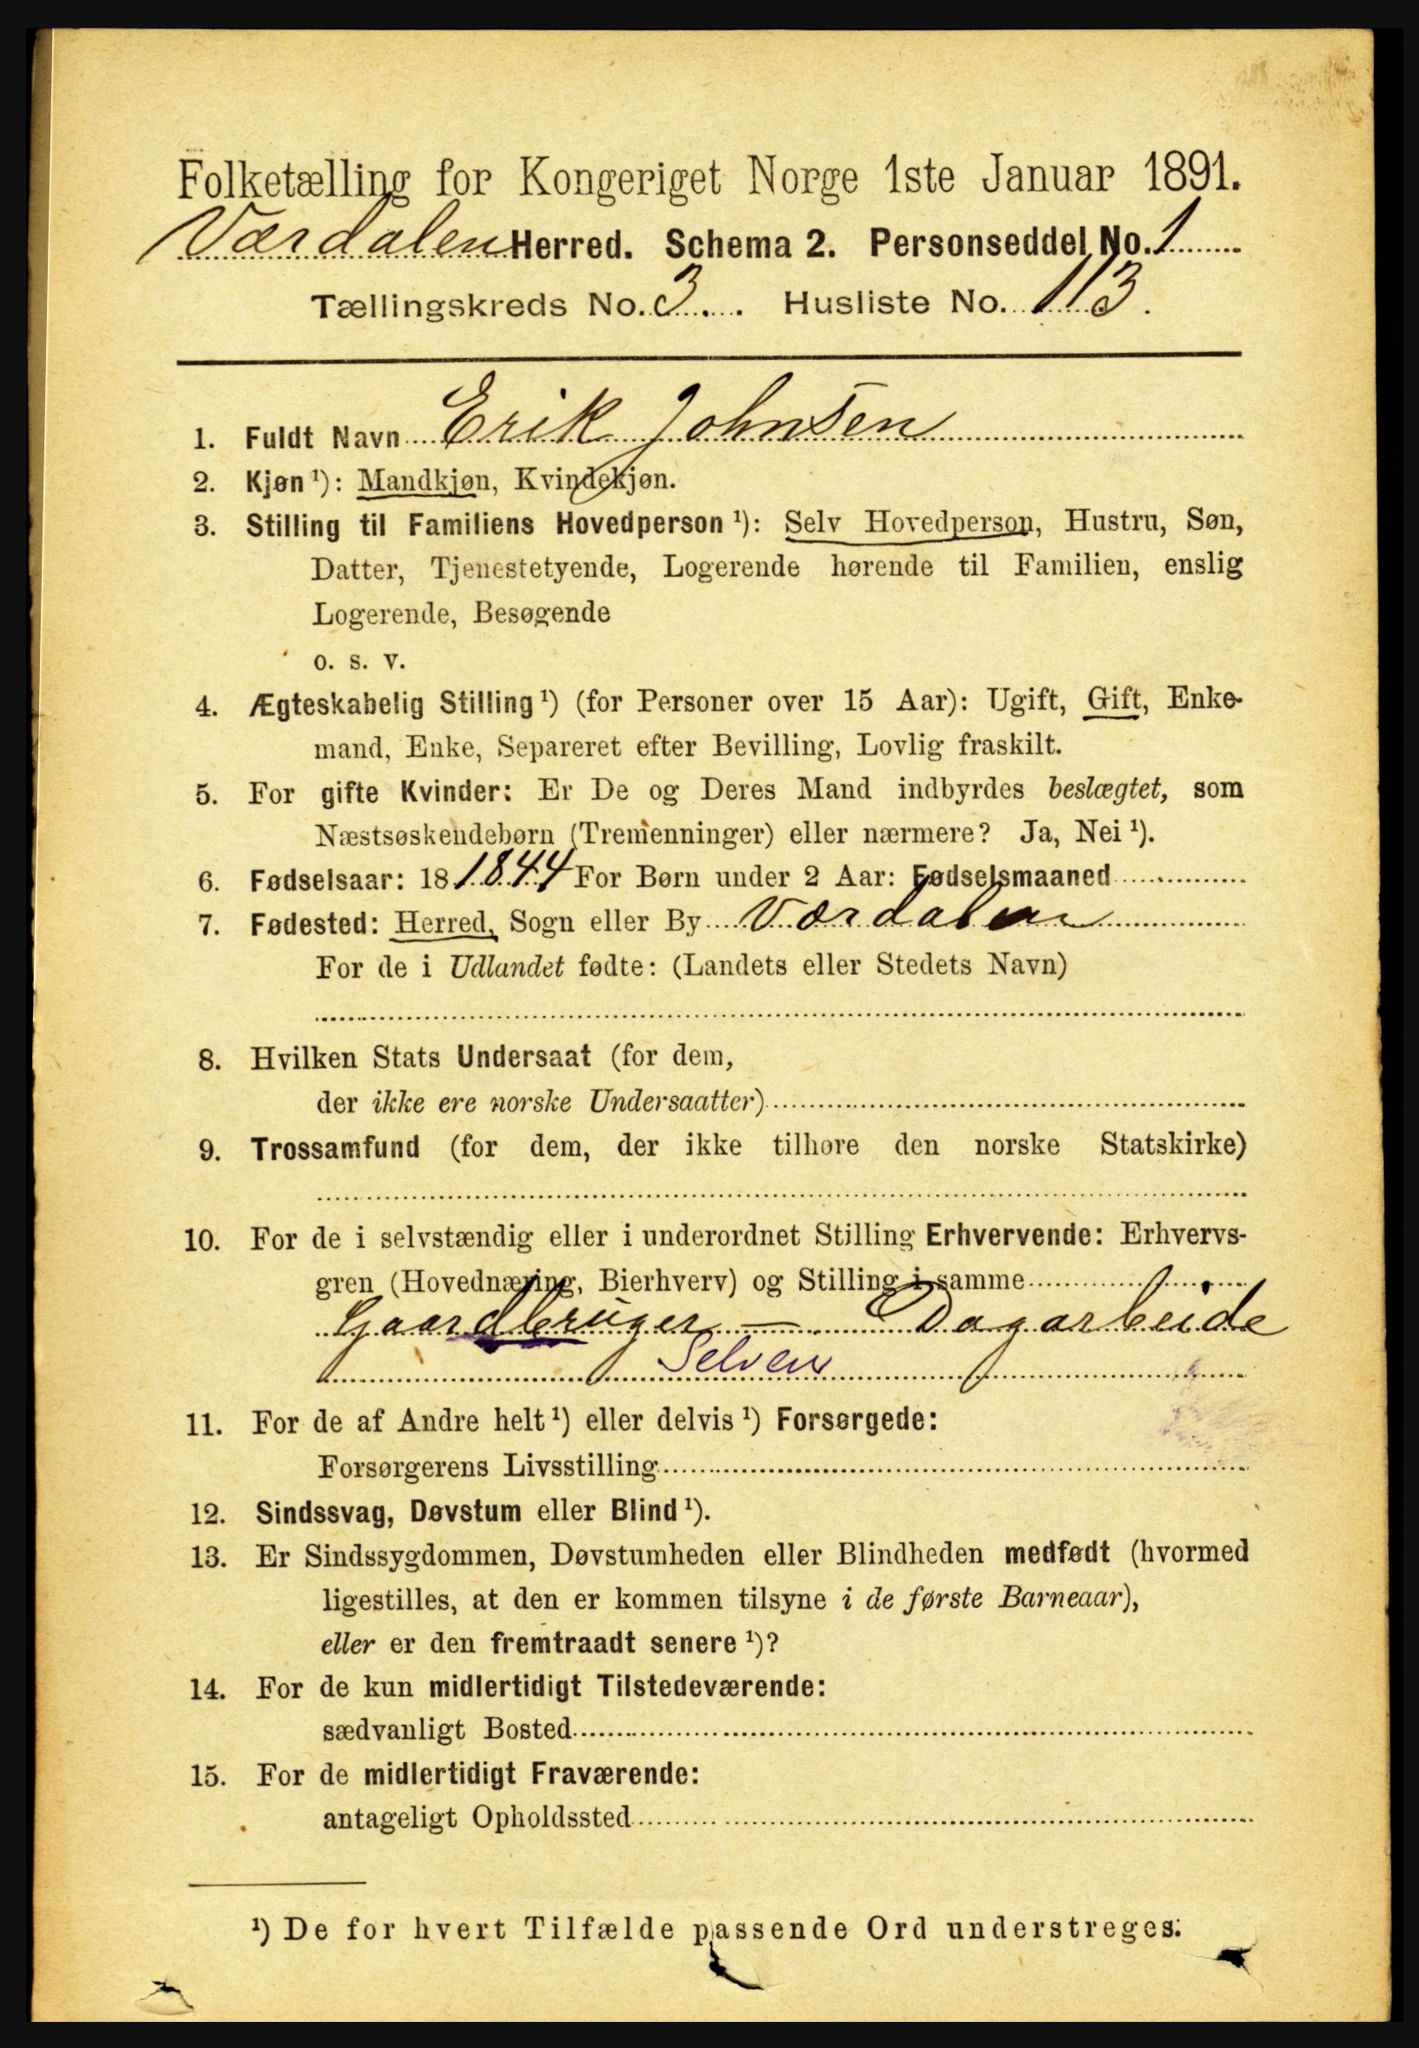 Folketælling for Kongeriget Norge 1ste Januar 1891.
Værdalen Herred. Schema 2. Personseddel No. 1
Tællingskreds No. 3. Husliste No. 113.
1. Fuldt Navn Erik Johnsen
2. Kjøn ¹): Mandkjøn, Kvindekjøn.
3. Stilling til Familiens Hovedperson ¹): Selv Hovedperson, Hustru, Søn,
Datter, Tjenestetyende, Logerende hørende til Familien, enslig
Logerende, Besøgende
o. s. v.
4. Ægteskabelig Stilling ¹) (for Personer over 15 Aar): Ugift, Gift, Enke-
mand, Enke, Separeret efter Bevilling, Lovlig fraskilt.
5. For gifte Kvinder: Er De og Deres Mand indbyrdes beslægtet, som
Næstsøskendebørn (Tremenninger) eller nærmere? Ja, Nei ¹).
6. Fødselsaar: 18 1844 For Børn under 2 Aar: Fødselsmaaned
7. Fødested: Herred, Sogn eller By Værdalen
For de i Udlandet fødte: (Landets eller Stedets Navn)
8. Hvilken Stats Undersaat (for dem,
der ikke ere norske Undersaatter)
9. Trossamfund (for dem, der ikke tilhøre den norske Statskirke)
10. For de i selvstændig eller i underordnet Stilling Erhvervende: Erhvervs-
gren (Hovednæring, Bierhverv) og Stilling i samme
Gaardbruger — Dagarbeide
Selveier
11. For de af Andre helt ¹) eller delvis ¹) Forsørgede:
Forsørgerens Livsstilling
12. Sindssvag, Døvstum eller Blind ¹).
13. Er Sindssygdommen, Døvstumheden eller Blindheden medfødt (hvormed
ligestilles, at den er kommen tilsyne i de første Barneaar),
eller er den fremtraadt senere ¹)?
14. For de kun midlertidigt Tilstedeværende:
sædvanligt Bosted
15. For de midlertidigt Fraværende:
antageligt Opholdssted
¹) De for hvert Tilfælde passende Ord understreges.